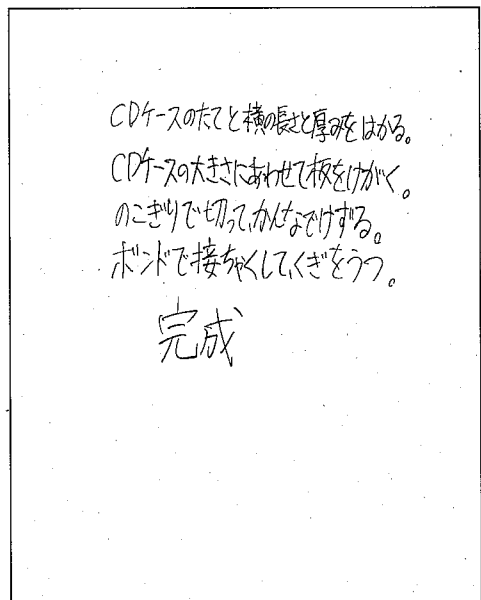 CDケースのたてと横の長さと厚みをはかる。
CDケースの大きさにあわせて板をけがく。
のこぎりで切って、かんなでけずる。
ボンドで接ちゃくして、くぎをうつ。
完成